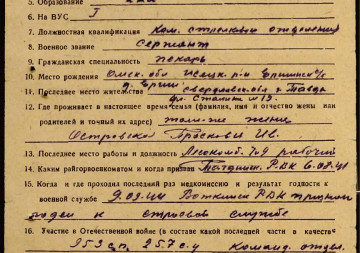 5. Образование
6. На ВУС 1
7. Должностная квалификация Ком. стрелкового отделения
8. Военное звание Сержант
9. Гражданская специальность пекарь
10. Место рождения Омск. обл р-н с/с
11. Последнее место жительства д. Ершик Свердловская о г Тавда
ул. Сталина № 13.
12. Где проживает в настоящее время семья (фамилия, имя и отчество жены или
родителей и точный их адрес) там-же жена
Островская Прасковья Ив.
13. Последнее место работы и должность Лесокомб. рабочий
14. Каким райгорвоенкоматом и когда призван Тавдинск. РВК 6.08.41
15. Когда и где проходил последний раз медкомиссию и результат годности к
военной службе 9.02.44 Воткинск РВК признан
годен к строевой службе
16. Участие в Отечественной войне (в составе какой последней части в качестве
953 сп 257 с.д Команд. отдел.